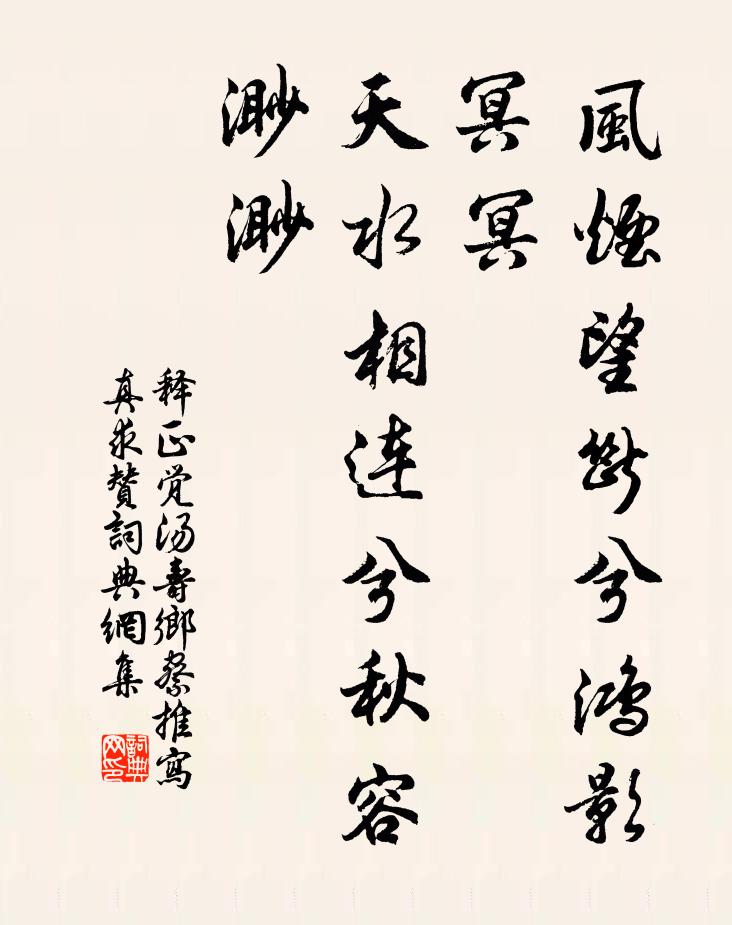 風煙望斷兮鴻影
冥冥
天水相連兮秋容
渺渺
释正覚湯壽鄉察推寫
真求賛詞典網集
詞典
网印